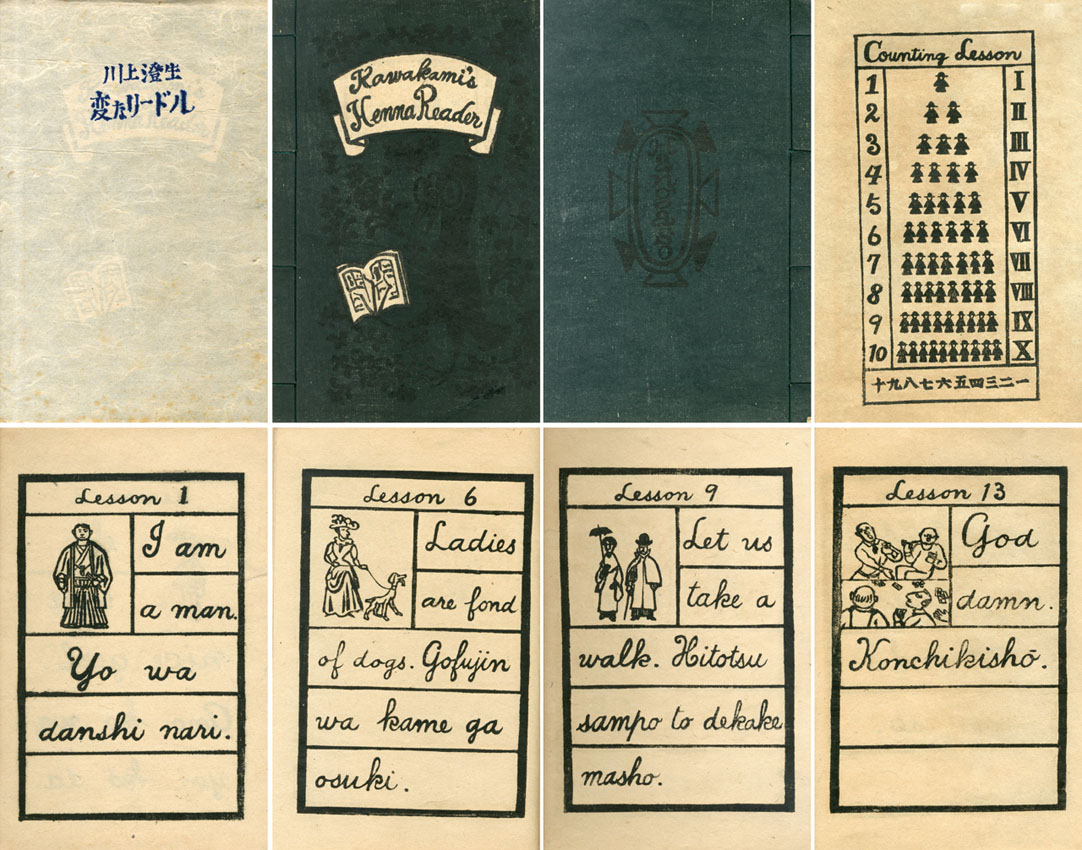 川上澄生
変なリードル
Kawakami's
Henna Reader
Counting Lesson
1 I
2 II
3 III
4 IV
5 V
6 VI
7 VII
8 VIII
9 IX
10 X
十九八七六五四三二一
Lesson 1
I am
a man.
Yo wa
danshi nari.
Lesson 6
Ladies
are fond
of dogs. Gofujin
wa kame ga
osuki.
Lesson 9
Let us
take a
walk. Hitotsu
sampo to dekake
masho.
Lesson 13
God
damn.
Konchikishō.